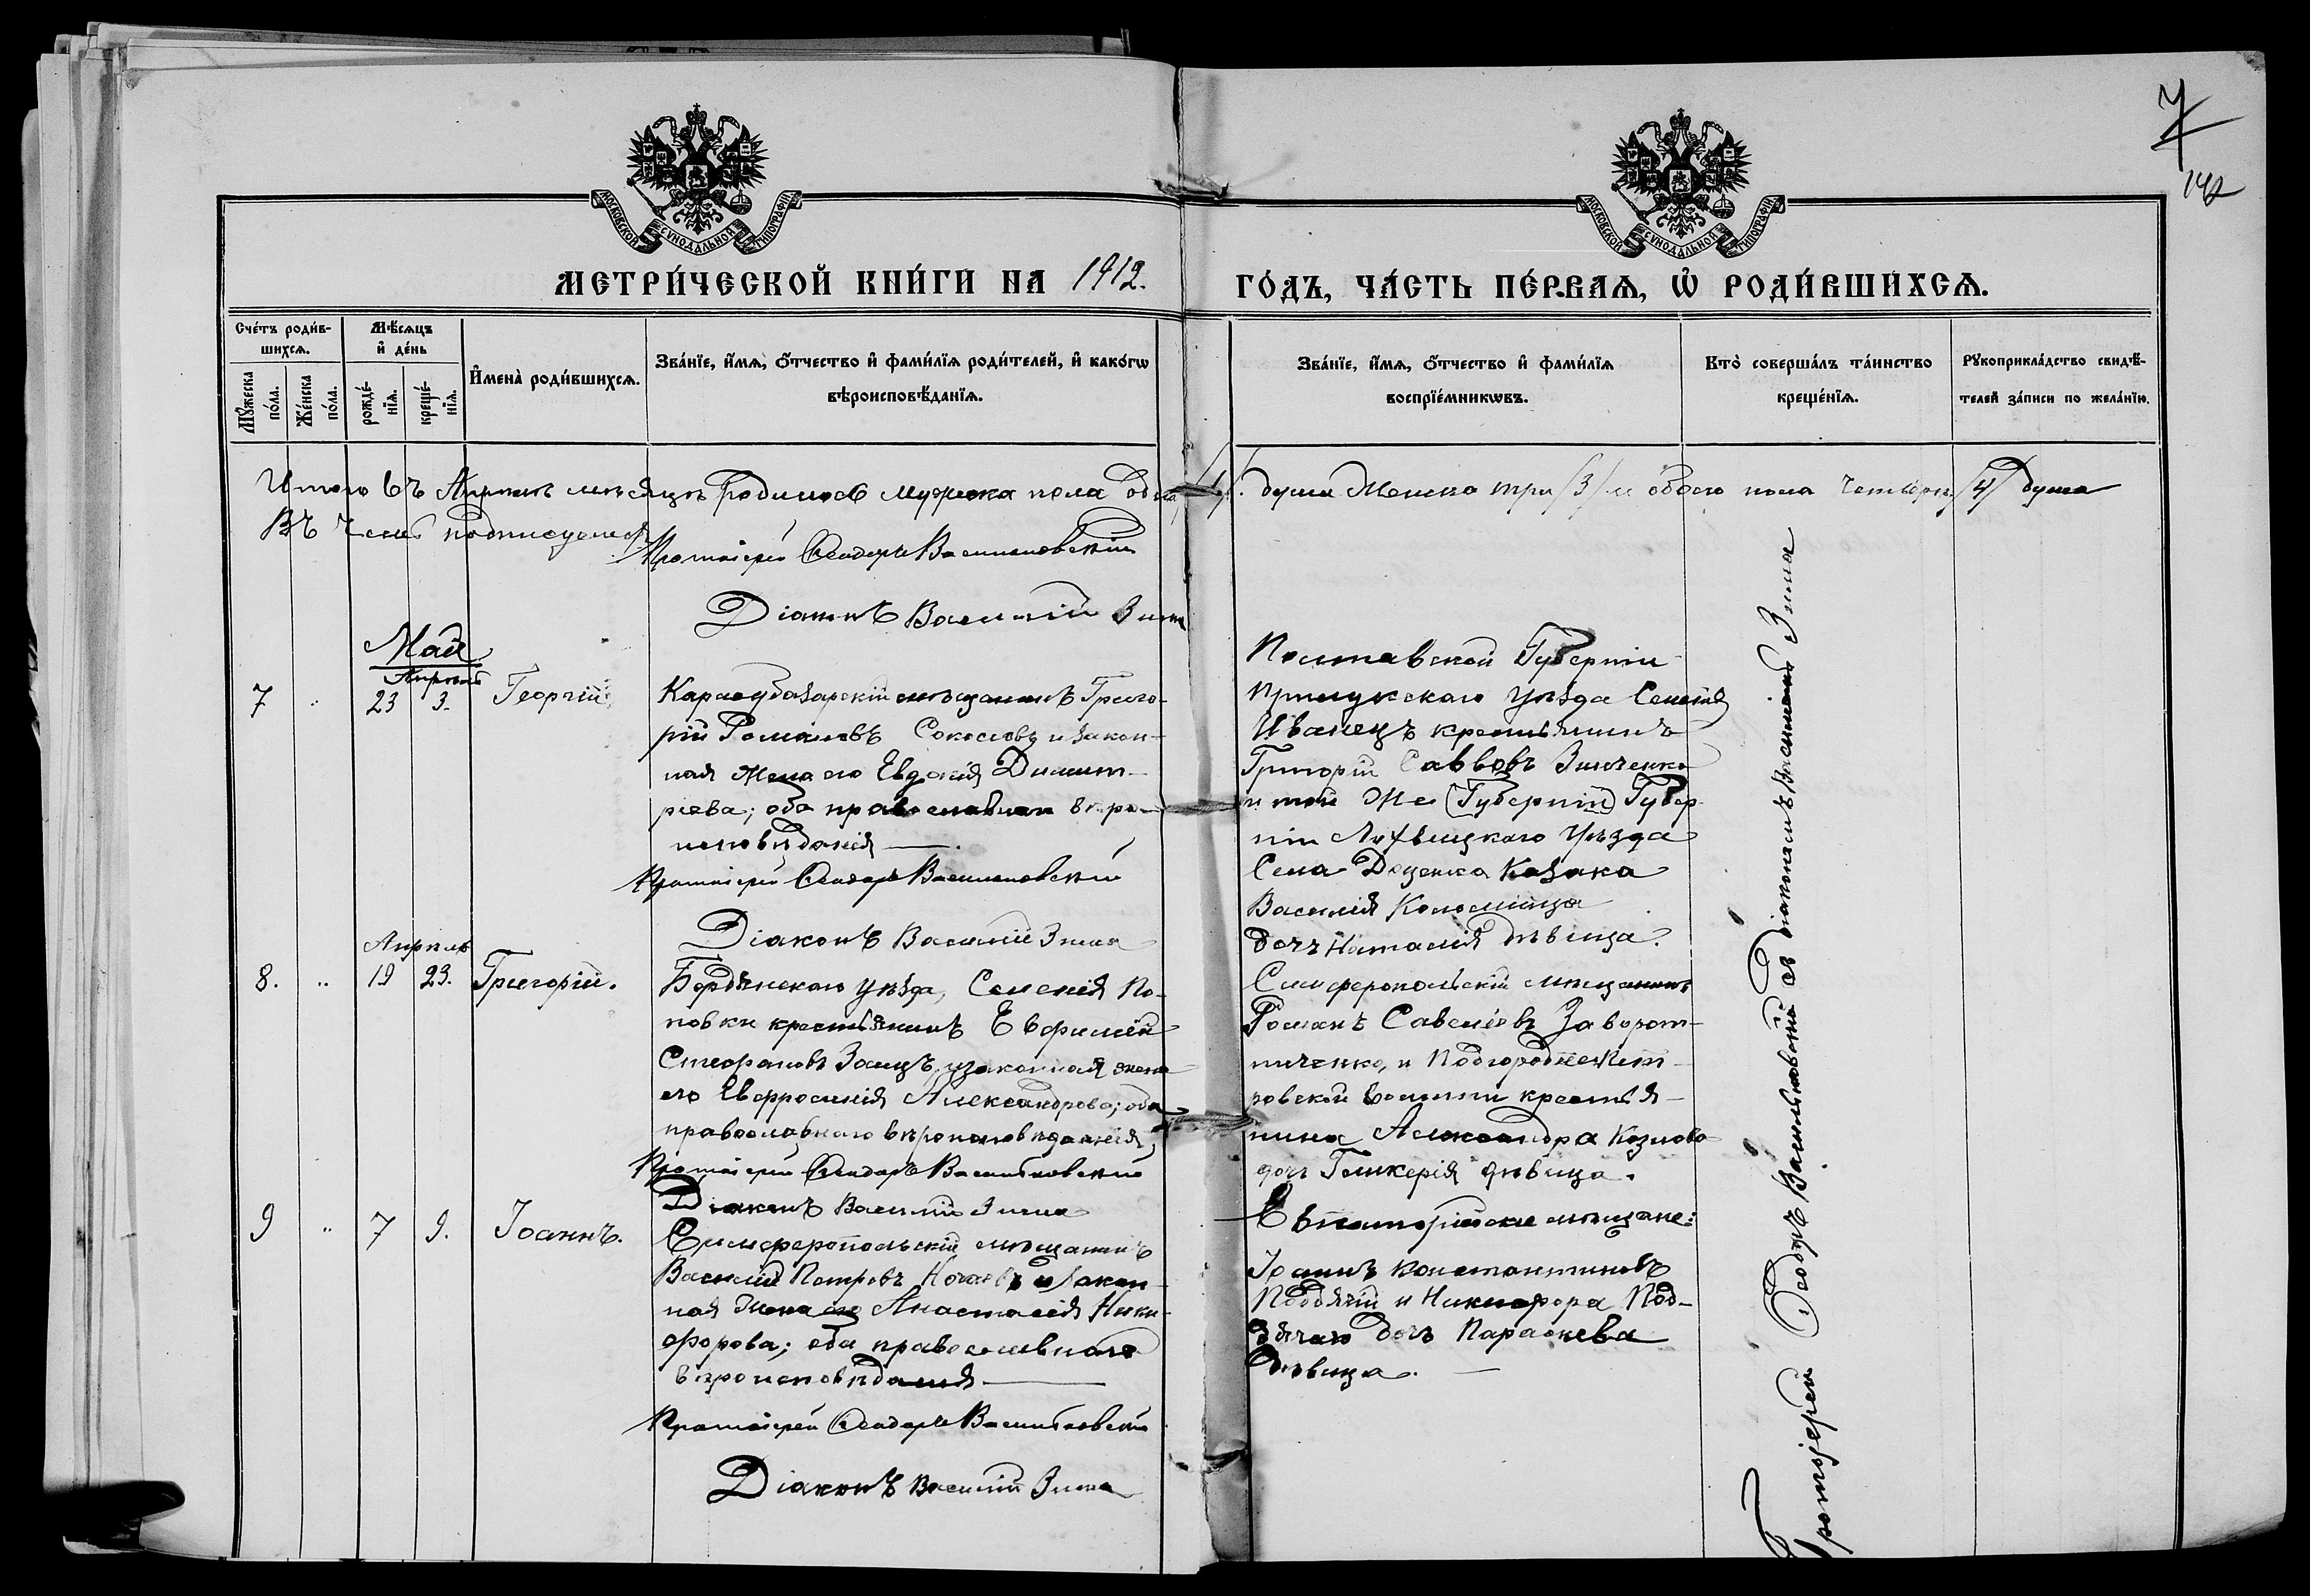 7
142
МОСКОВСКОЙ СѴНОДАЛЬНОЙ ТИПОГРАФІИ
МОСКОВСКОЙ СѴНОДАЛЬНОЙ ТИПОГРАФІИ
МЕТРИ́ЧЕСКОЙ КНИ́ГИ НА 1912. ГО́ДЪ, ЧА́СТЬ ПЕ́РВАѦ, Ѡ҆ РОДИ́ВШИХСѦ.
Сче́тъ роди́в-
шихсѧ.
Мꙋ́жеска
по́ла.
Же́нска
по́ла.
Мѣ́сѧцъ
и҆ де́нь
рожде́-
нїѧ.
креще́-
нїѧ.
И҆мена̀ роди́вшихсѧ.
Зва́нїе, и҆́мѧ, ѻ҆́тчество и҆ фами́лїѧ роди́телей, и҆ како́гѡ
вѣроисповѣ́данїѧ.
Зва́нїе, и҆́мѧ, ѻ҆́тчество и҆ фами́лїѧ
воспрїе́мникѡвъ.
Кто̀ соверша́лъ та́инство
креще́нїѧ.
Рꙋкоприкла́дство свидѣ́-
телей за́писи по жела́нїю.
Итого въ Апрѣлѣ мѣсяцѣ родилось мужска пола одна /1/. душа Женска три /3/ и обоего пола четыре /4/ душа
Въ чемъ подписуемся
Протоіерей Ѳеодоръ Васильковскій
Діаконъ Василій Зима
Май
Апрѣль
7 " 23 3. Георгій
Карасубазарскій мѣщанинъ Григо-
рій Романовъ Соколовъ и закон-
ная Жена его Евдокія Димит-
ріева; оба православнаго вѣро-
исповѣданія
Протоіерей Ѳеодоръ Васильковскій
Діаконъ Василій Зима
Полтавской Губерніи
Прилукскаго уѣзда Селенія
Иванецъ крестьянинъ
Григорій Саввовъ Зинченко
и той Же (Губерніи) Губер-
ніи Лохвицкаго Уѣзда
Села Доценка Казака
Василія Коломійца
дочь Наталія дѣвица.
Апрѣль
8. " 19 23. Григорій.
Бердянскаго уѣзда, Селенія По-
повки крестьянинъ Евфимій
Стефановъ Заецъ, и законная жена
его Евфросинія Александрова; оба
православнаго вѣроисповѣданія,
Протоіерей Ѳеодоръ Васильковскій
Діаконъ Василій Зима
Симферопольскій мѣщанинъ
Романъ Савеліевъ Заворот-
ниченко, и Подгородне-Пет-
ровской Волости крестья-
нина Александра Козлова
дочь Гликерія дѣвица.
9 " 7 9. Іоаннъ.
Симферопольскій мѣщанинъ
Василій Петровъ и закон-
ная Жена его Анастасія Ники-
форова; оба православнаго
вѣроисповѣданія
Протоіерей Ѳеодоръ Васильковскій
Діаконъ Василій Зима
Евпаторійскіе мѣщане:
Іоаннъ Константиновъ
Поддячій и Никифора Под-
дячаго дочь Параскева
Дѣвица.
Протоіерей Ѳеодоръ Васильковскій съ Діакономъ Василіемъ Зима